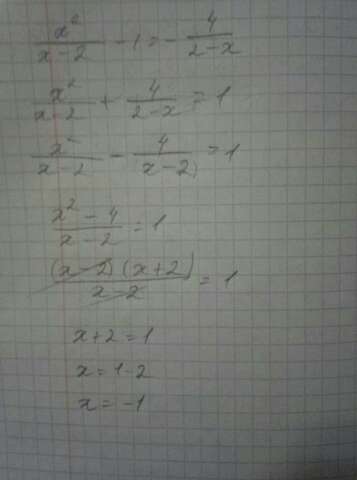 x²/(x-2) - 1 = - 4/(2-x)
x²/(x-2) + 4/(2-x) = 1
x²/(x-2) - 4/(x-2) = 1
(x² - 4)/(x-2) = 1
(x-2)(x+2)/(x-2) = 1
x+2 = 1
x = 1-2
x = -1